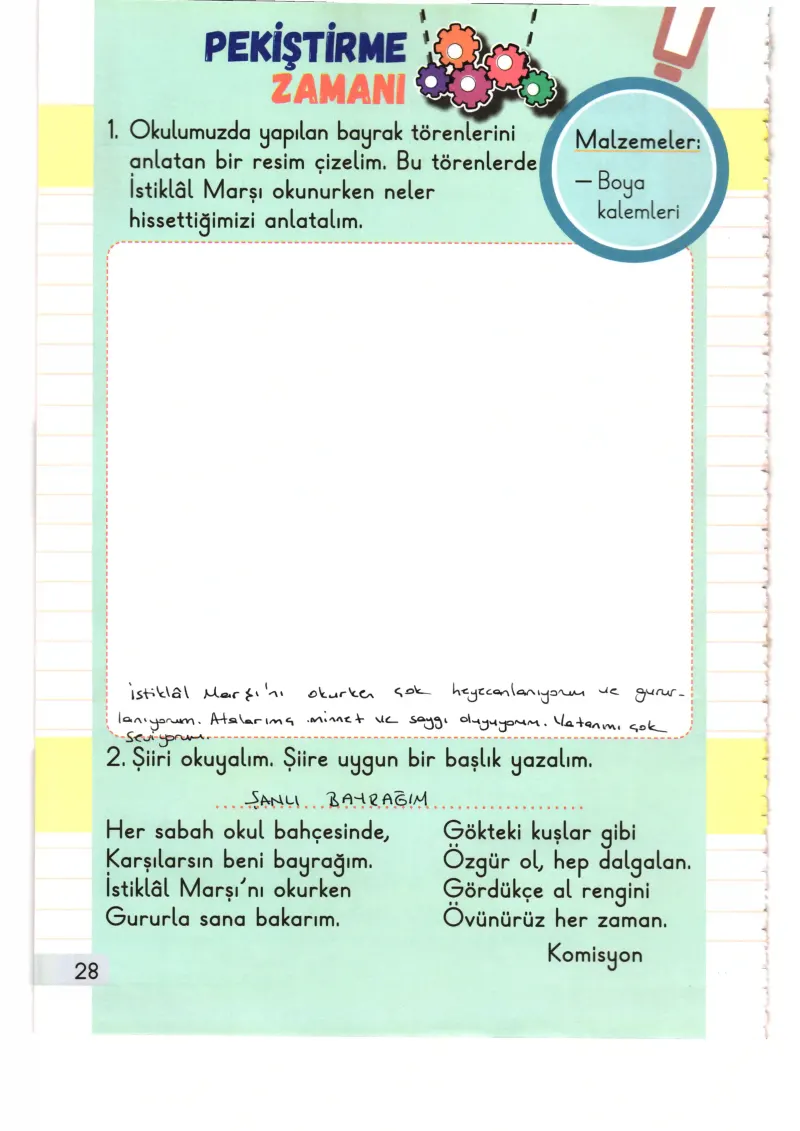 PEKİŞTİRME
ZAMANI
1. Okulumuzda yapılan bayrak törenlerini
anlatan bir resim çizelim. Bu törenlerde
İstiklâl Marşı okunurken neler
hissettiğimizi anlatalım.
Malzemeler:
– Boya
kalemleri
İstiklâl Marşı'nı okurken çok heyecanlanıyorum ve gurur-
lanıyorum. Atalarıma minnet ve saygı duyuyorum. Vatanımı çok
Seviyorum.
2. Şiiri okuyalım. Şiire uygun bir başlık yazalım.
ŞANLI BAYRAĞIM
Her sabah okul bahçesinde,
Karşılarsın beni bayrağım.
İstiklâl Marşı'nı okurken
Gururla sana bakarım.
Gökteki kuşlar gibi
Özgür ol, hep dalgalan.
Gördükçe al rengini
Övünürüz her zaman.
Komisyon
28